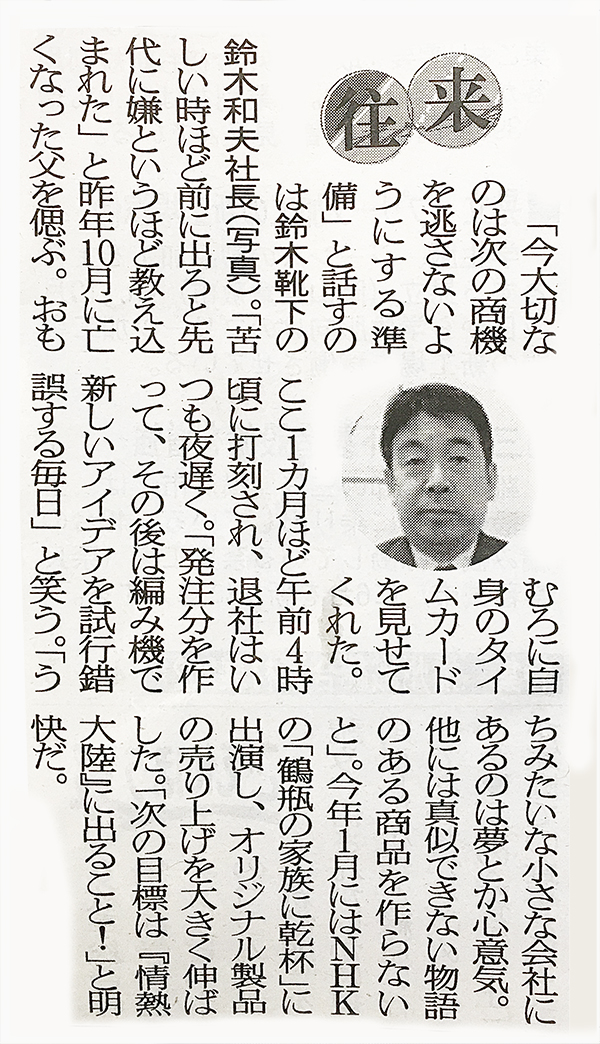 往来
「今大切な
のは次の商機
を逃さないよ
うにする準
備」と話すの
は鈴木靴下の
鈴木和夫社長(写真)。「苦
しい時ほど前に出ろと先
代に嫌というほど教え込
まれた」と昨年10月に亡
くなった父を偲ぶ。おも
むろに自
身のタイ
ムカード
を見せて
くれた。
ここ1カ月ほど午前4時
頃に打刻され、退社はい
つも夜遅く。「発注分を作
って、その後は編み機で
新しいアイデアを試行錯
誤する毎日」と笑う。「う
ちみたいな小さな会社に
あるのは夢とか心意気。
他には真似できない物語
のある商品を作らない
と」。今年1月にはNHK
の「鶴瓶の家族に乾杯」に
出演し、オリジナル製品
の売り上げを大きく伸ば
した。「次の目標は『情熱
大陸』に出ること!」と明
快だ。